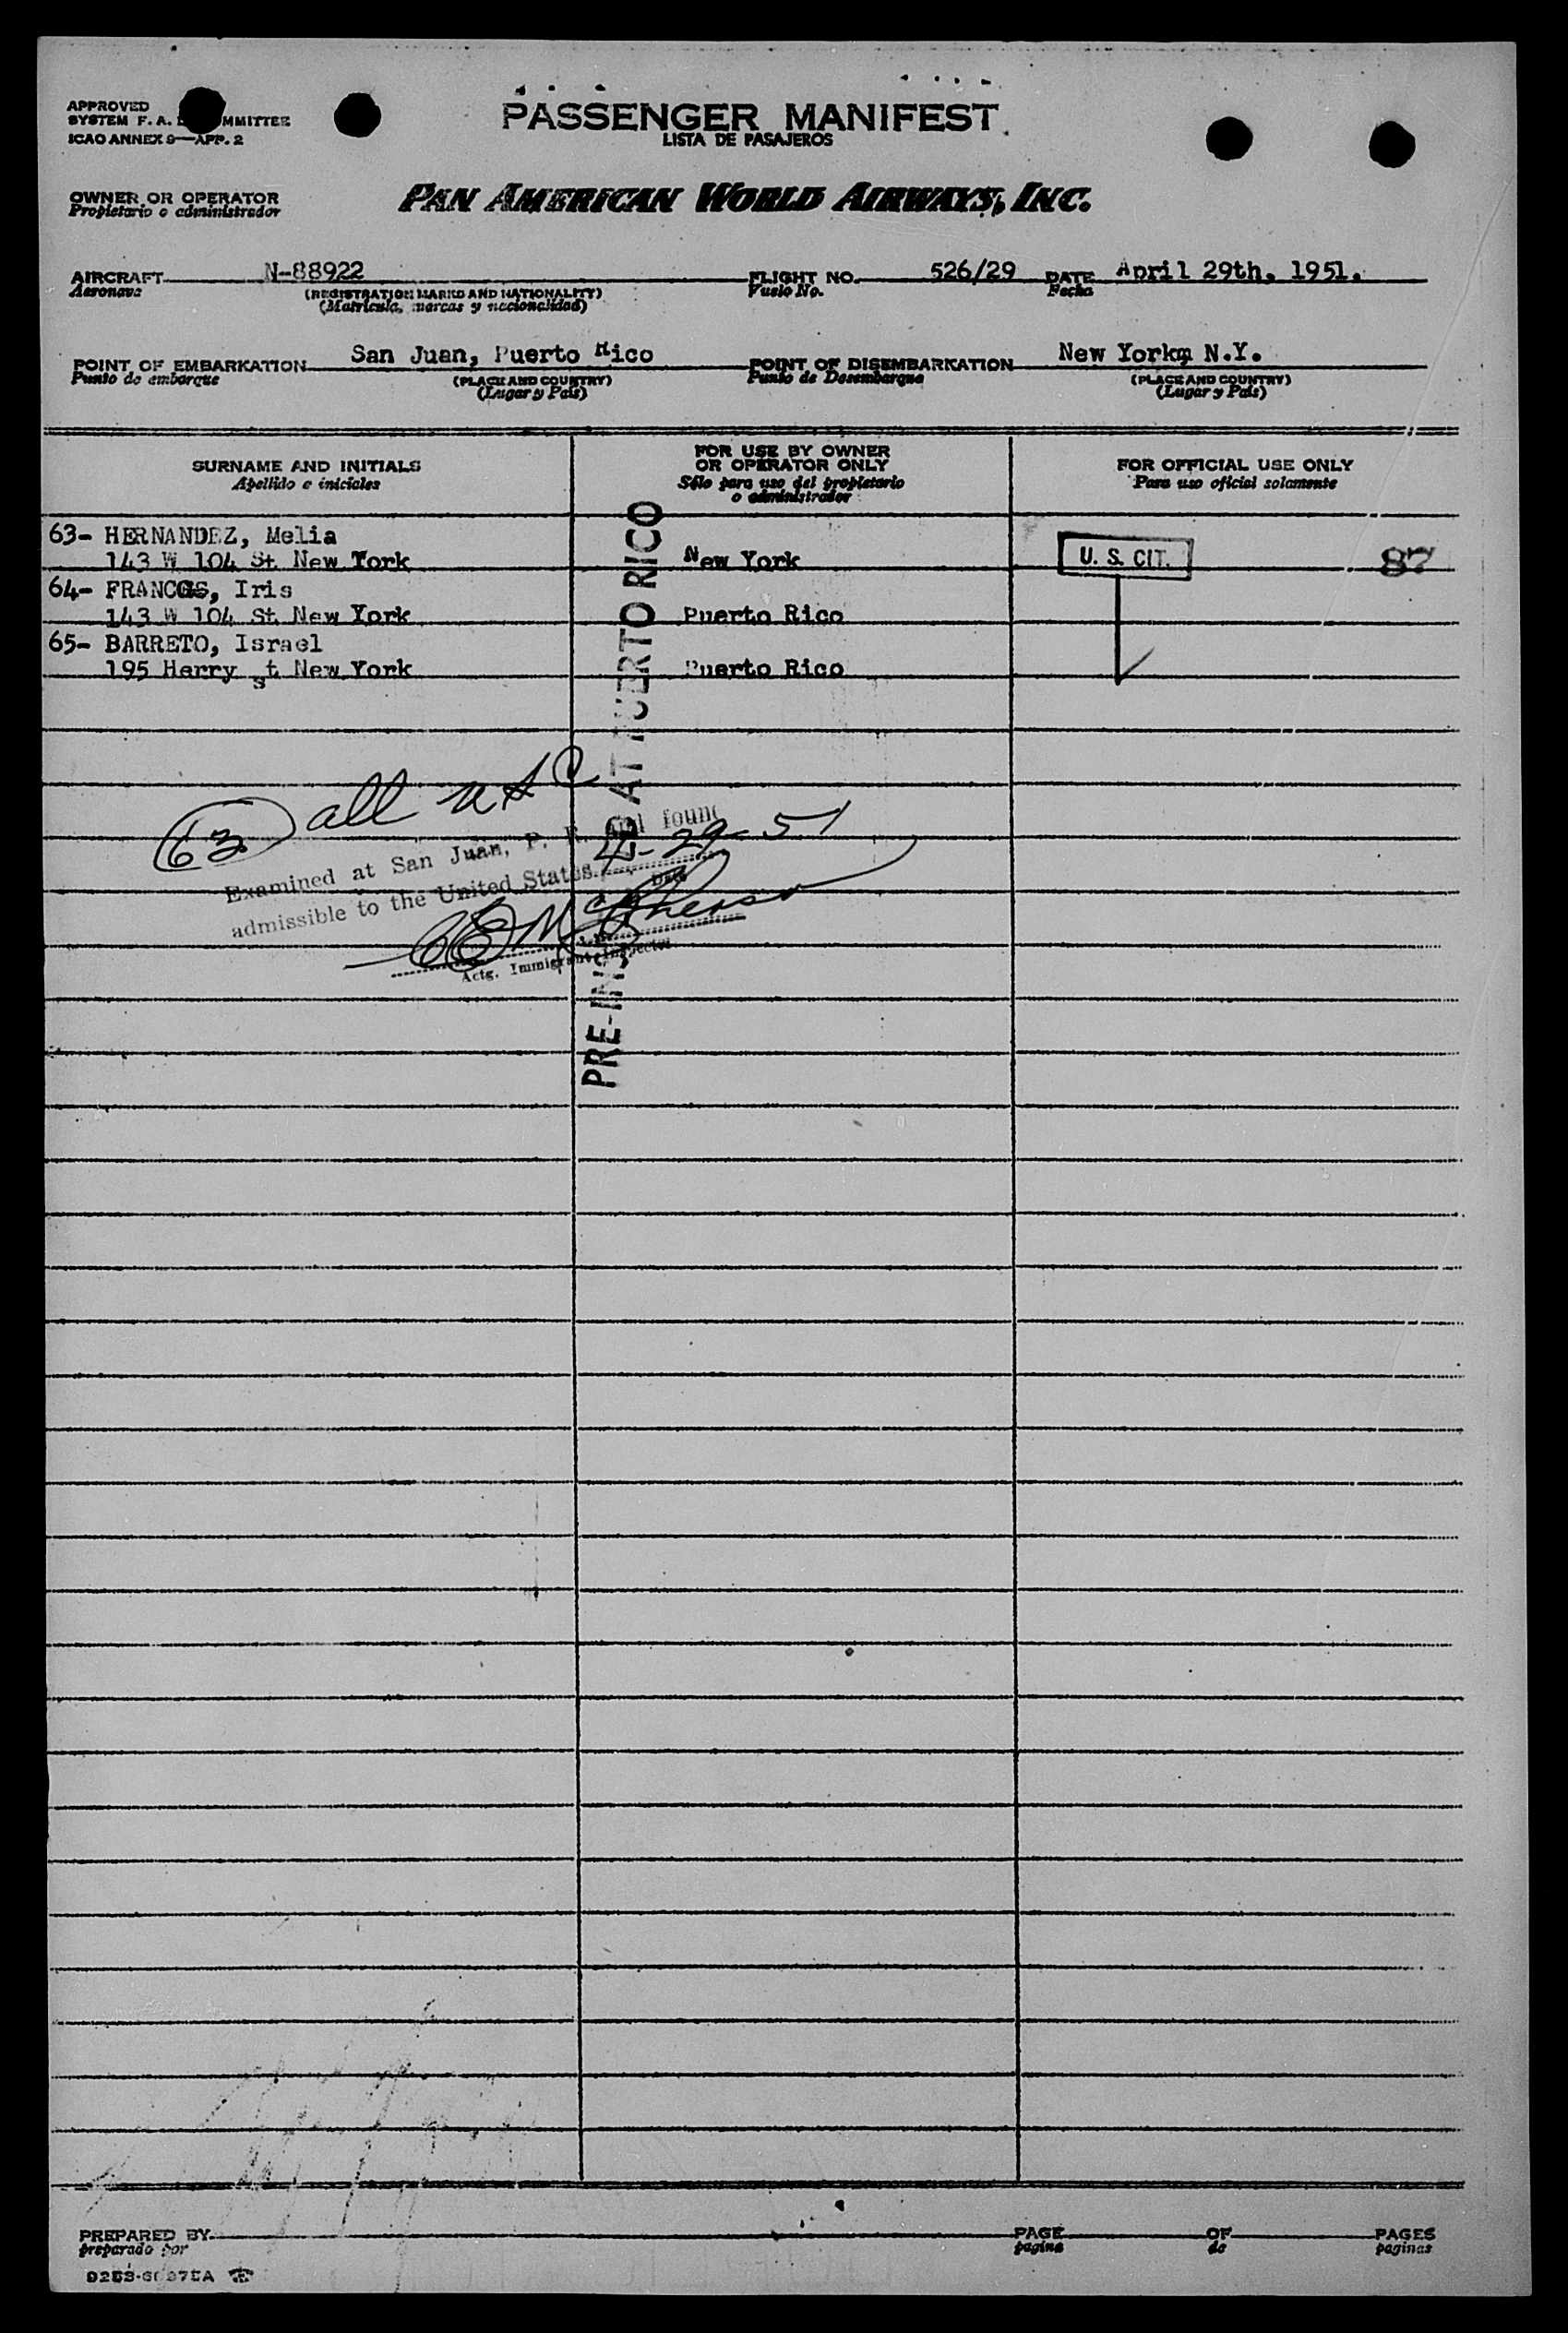 APPROVED
SYSTEM F. A. L. COMMITTEE
ICAO ANNEX 9—APP. 2
PASSENGER MANIFEST
LISTA DE PASAJEROS
OWNER OR OPERATOR
Propietario o administrador
PAN AMERICAN WORLD AIRWAYS, INC.
AIRCRAFT N-88922 FLIGHT NO. 526/29 DATE April 29th, 1951.
Aeronave (REGISTRATION MARKS AND NATIONALITY) Vuelo No. Fecha
(Matricula, marcas y nacionalidad)
POINT OF EMBARKATION San Juan, Puerto Rico POINT OF DISEMBARKATION New York, N.Y.
Punto de embarque (PLACE AND COUNTRY) Punto de Desembarque (PLACE AND COUNTRY)
(Lugar y Pais) (Lugar y Pais)
SURNAME AND INITIALS
Apellido e iniciales
FOR USE BY OWNER
OR OPERATOR ONLY
Sólo para uso del propietario
o administrador
FOR OFFICIAL USE ONLY
Para uso oficial solamente
63- HERNANDEZ, Melia
143 W 104 St New York New York U. S. CIT. 87
64- FRANCOS, Iris
143 W 104 St New York Puerto Rico
65- BARRETO, Israel
195 Herry st New York Puerto Rico
PRE-INSPECTED AT PUERTO RICO
63 all USC
Examined at San Juan, P. R. and found
admissible to the United States 4-29-51
Date
McPherson
Actg. Immigrant Inspector
PREPARED BY PAGE OF PAGES
preparado por pagina de paginas